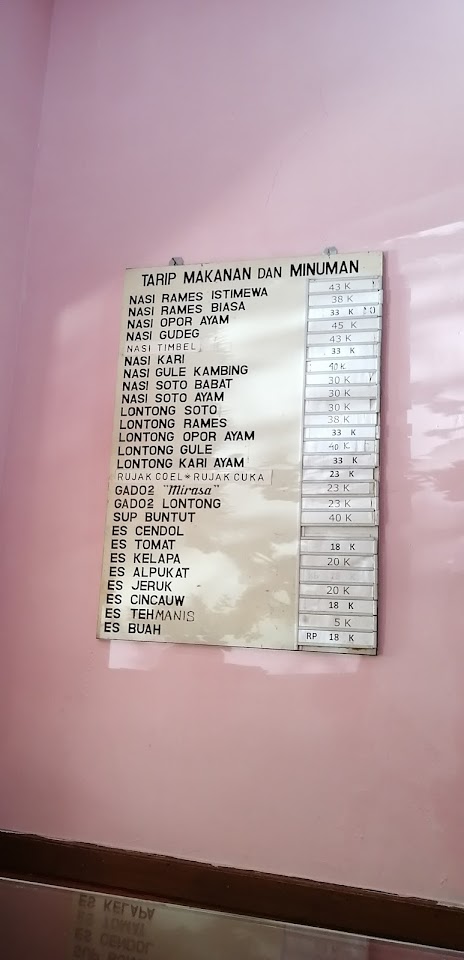 TARIP MAKANAN DAN MINUMAN
NASI RAMES ISTIMEWA 43 K
NASI RAMES BIASA 38 K
NASI OPOR AYAM 33 K
NASI GUDEG 45 K
NASI TIMBEL 43 K
NASI KARI 33 K
NASI GULE KAMBING 40 K
NASI SOTO BABAT 30 K
NASI SOTO AYAM 30 K
LONTONG SOTO 30 K
LONTONG RAMES 38 K
LONTONG OPOR AYAM 33 K
LONTONG GULE 40 K
LONTONG KARI AYAM 33 K
RUJAK COEL * RUJAK CUKA 23 K
GADO2 "Mirasa" 23 K
GADO2 LONTONG 23 K
SUP BUNTUT 40 K
ES CENDOL
ES TOMAT 18 K
ES KELAPA 20 K
ES ALPUKAT
ES JERUK 20 K
ES CINCAUW 18 K
ES TEHMANIS 5 K
ES BUAH RP 18 K
ES KELAPA
ES TOMAT
ES CENDOL